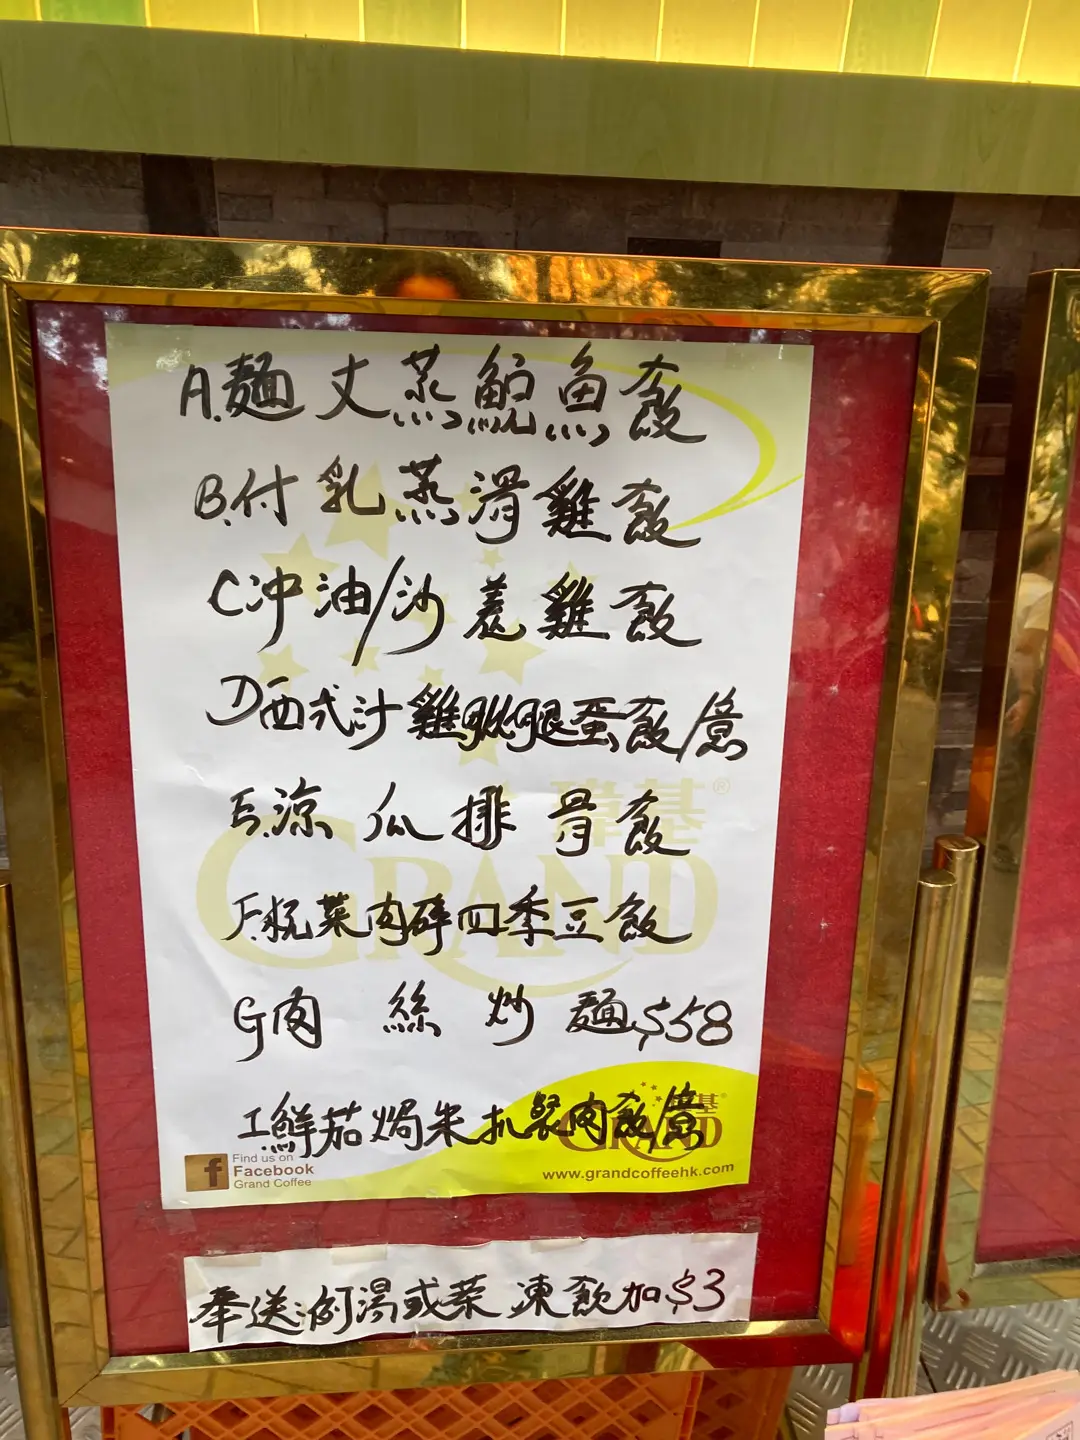 A.麵丈蒸鯇魚飯
B.付乳蒸滑雞飯
C冲油/沙羌雞飯
D西式汁雞腿蛋飯/意
E.涼瓜排骨飯
F.榄菜肉碎四季豆飯
G肉絲炒麵$58
I.鮮茄焗朱扒餐肉飯/意
瑋基®
GRAND
Find us on
Facebook
Grand Coffee
www.grandcoffeehk.com
奉送例湯或茶 凍飲加$3